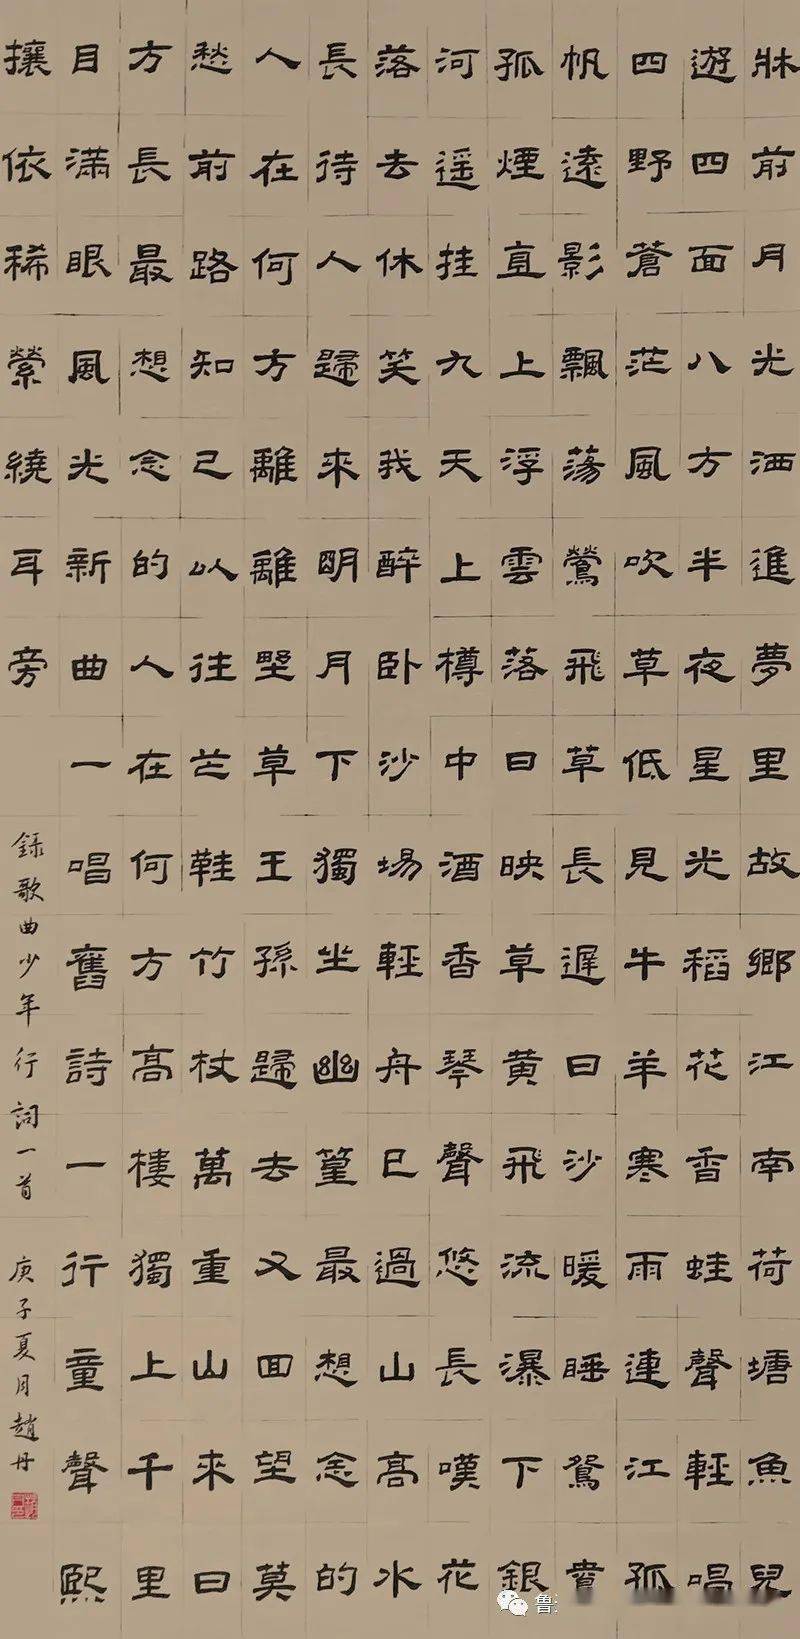 牀前月光洒進夢里故鄉江南荷塘魚兒
遊四面八方半夜星光稻花香蛙聲輕唱
四野蒼茫風吹草低見牛羊寒雨連江孤
帆遠影飄蕩鶯飛草長遲日沙暖睡鴛鴦
孤煙直上浮雲落日映草黄飛流瀑下銀
河遥挂九天上樽中酒香琴聲悠長嘆花
落去休笑我醉卧沙場輕舟已過山高水
長待人歸來明月下獨坐幽篁最想念的
人在何方離離墅草王孫歸去又回望莫
愁前路知己以往芒鞋竹杖萬重山來日
方長最想念的人在何方高樓獨上千里
目滿眼風光新曲一唱舊詩一行童聲熙
攘依稀縈繞耳旁
録歌曲少年行詞一首 庚子夏月趙丹
鲁